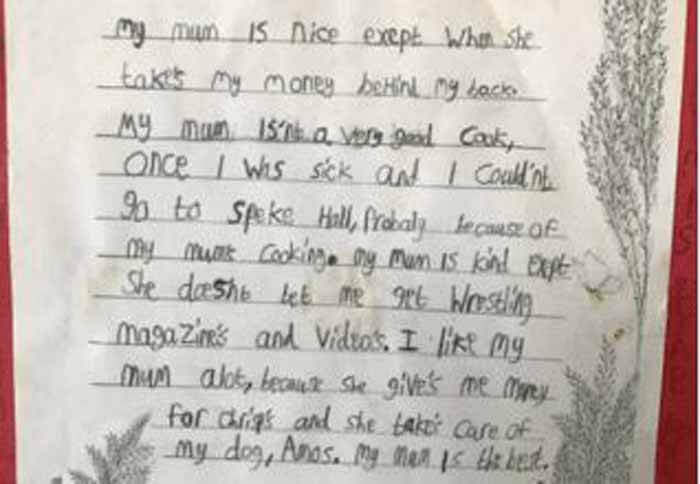 my mum is nice exept when she
takes my money behind my back.
My mum is'nt a very good cook,
Once I was sick and I Could'nt
go to Speke Hall, Probaly because of
my mums cooking. my mum is kind exept
She doesnt let me get Wrestling
magazine's and Video's. I like my
mum alot, because she give's me money
for chrips and she take's care of
my dog, Amos. my mum is the best.